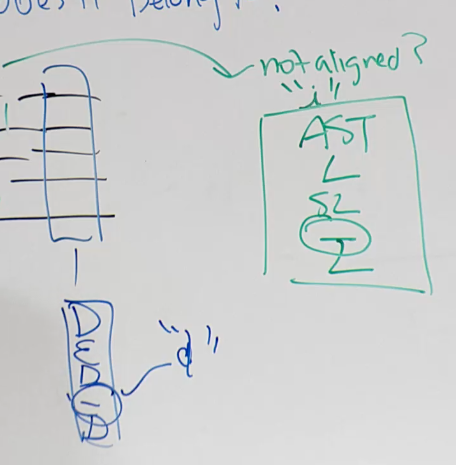 Does it belong?
not aligned?
"i"
AST
L
SL
I
L
D
E
D
-
D
"d"